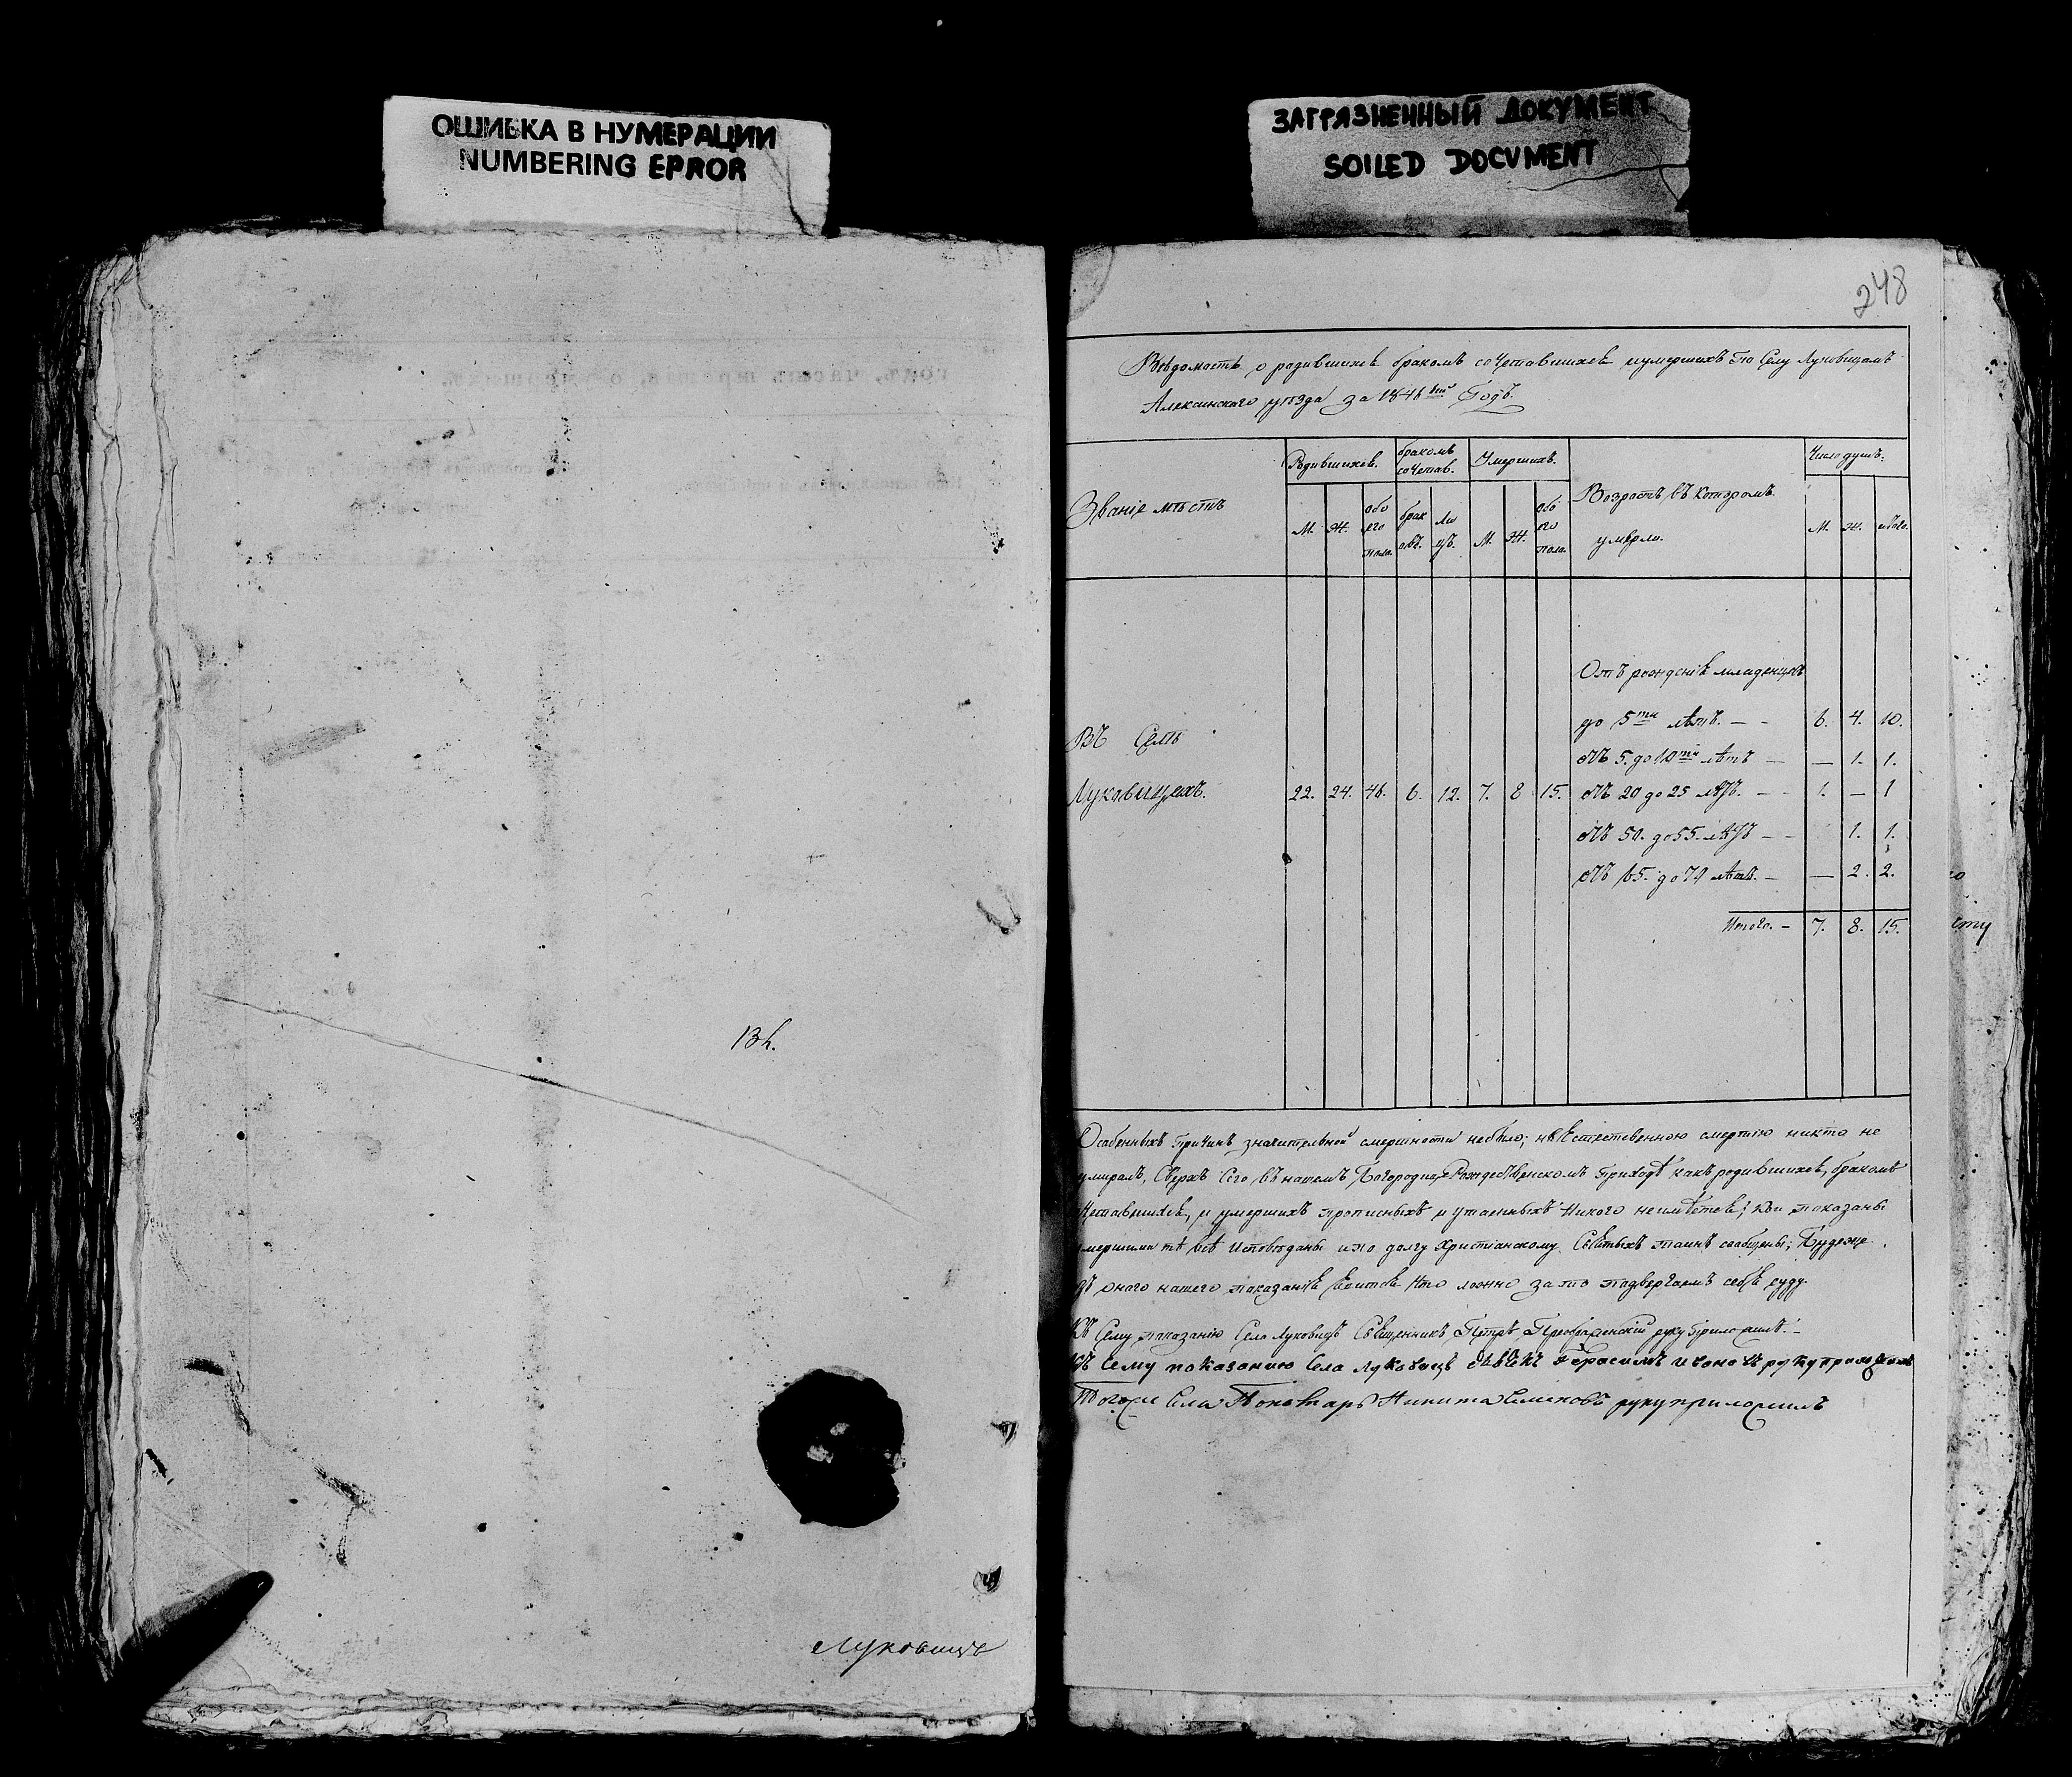 ОШИБКА В НУМЕРАЦИИ
NUMBERING ERROR
ЗАГРЯЗНЕННЫЙ ДОКУМЕНТ
SOILED DOCUMENT
248
Вѣдомость о родившихся бракомъ сочетавшихся и умершихъ по Селу Луковицамъ
Алексинского уѣзда за 1846 Годъ.
Званіе мѣстъ
Родившихся.
бракомъ сочетав.
Умершихъ.
Возрастъ въ которомъ умерли.
Число душъ.
М. Ж. обоего пола. браковъ. лицъ. М. Ж. обоего пола. М. Ж. обоего.
Отъ рожденія младенцевъ
до 5ти лѣтъ. — - 6. 4. 10.
Въ Селѣ
отъ 5. до 10ти лѣтъ — — 1. 1.
Луковицахъ. 22. 24. 46. 6. 12. 7. 8 15. отъ 20 до 25 лѣтъ. — - 1. — 1
отъ 50. до 55. лѣтъ — - 1. 1.
отъ 65. до 70 лѣтъ. — — 2. 2.
Итого. — 7. 8. 15.
сту
13
Особенныхъ причинъ значительной смертности небыло; не Естественною смертію никто не
умиралъ, Сверхъ Сего въ нашемъ Богородице Рождественскомъ приходѣ какъ родившихся, бракомъ
четавшихся, и умершихъ прописныхъ и утаенныхъ никого неимѣется; кои показаны
мершими тѣ всѣ Исповѣданы и по долгу Христіанскому Святыхъ таинъ сообщены; Будеже
въ оного нашего показанія явится что ложно за то подвергаемъ себя суду.
Къ Сему показанію Села Луковицъ Священникъ Петръ Преображенскій руку приложилъ. —
Къ Сему показанию Села луковецъ Герасимъ ивоновъ руку приложилъ
Тогоже Села Пономарь Никита Семеновъ руку приложилъ
Луковицъ